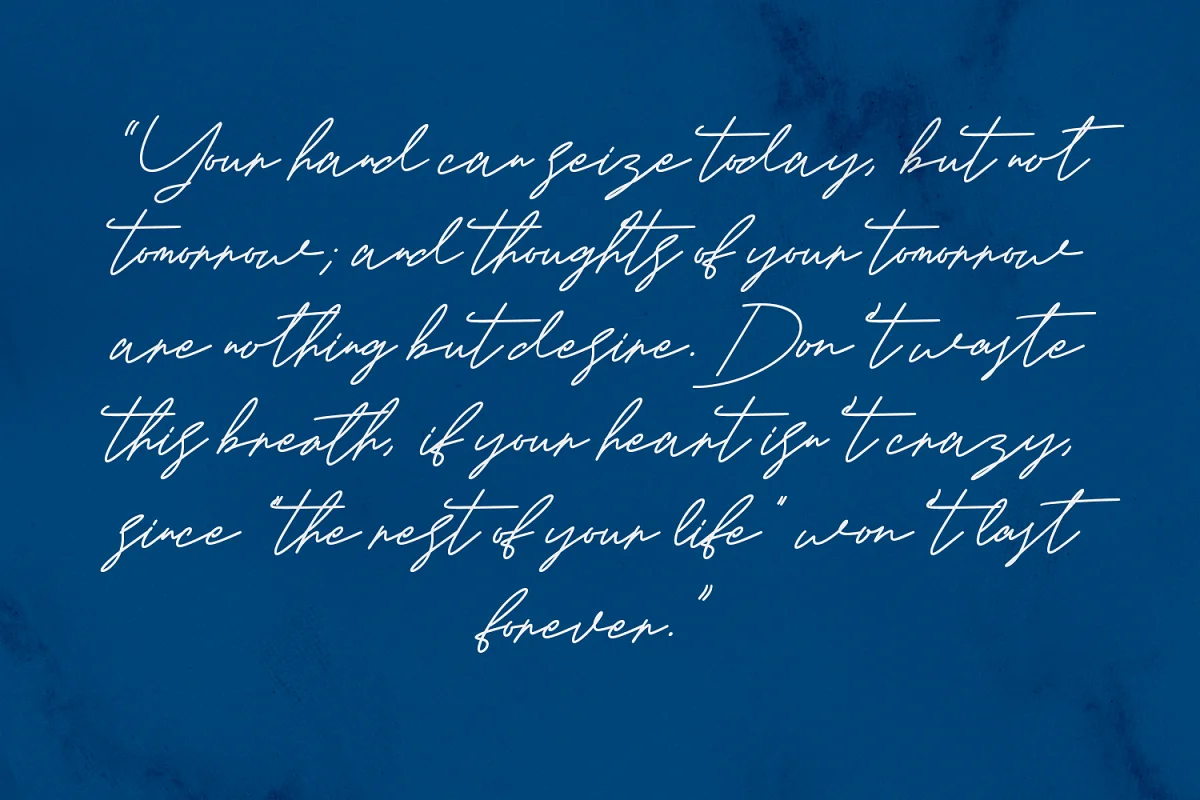 "Your hand can seize today, but not
tomorrow; and thoughts of your tomorrow
are nothing but desire. Don't waste
this breath, if your heart isn't crazy,
since "the rest of your life" won't last
forever."